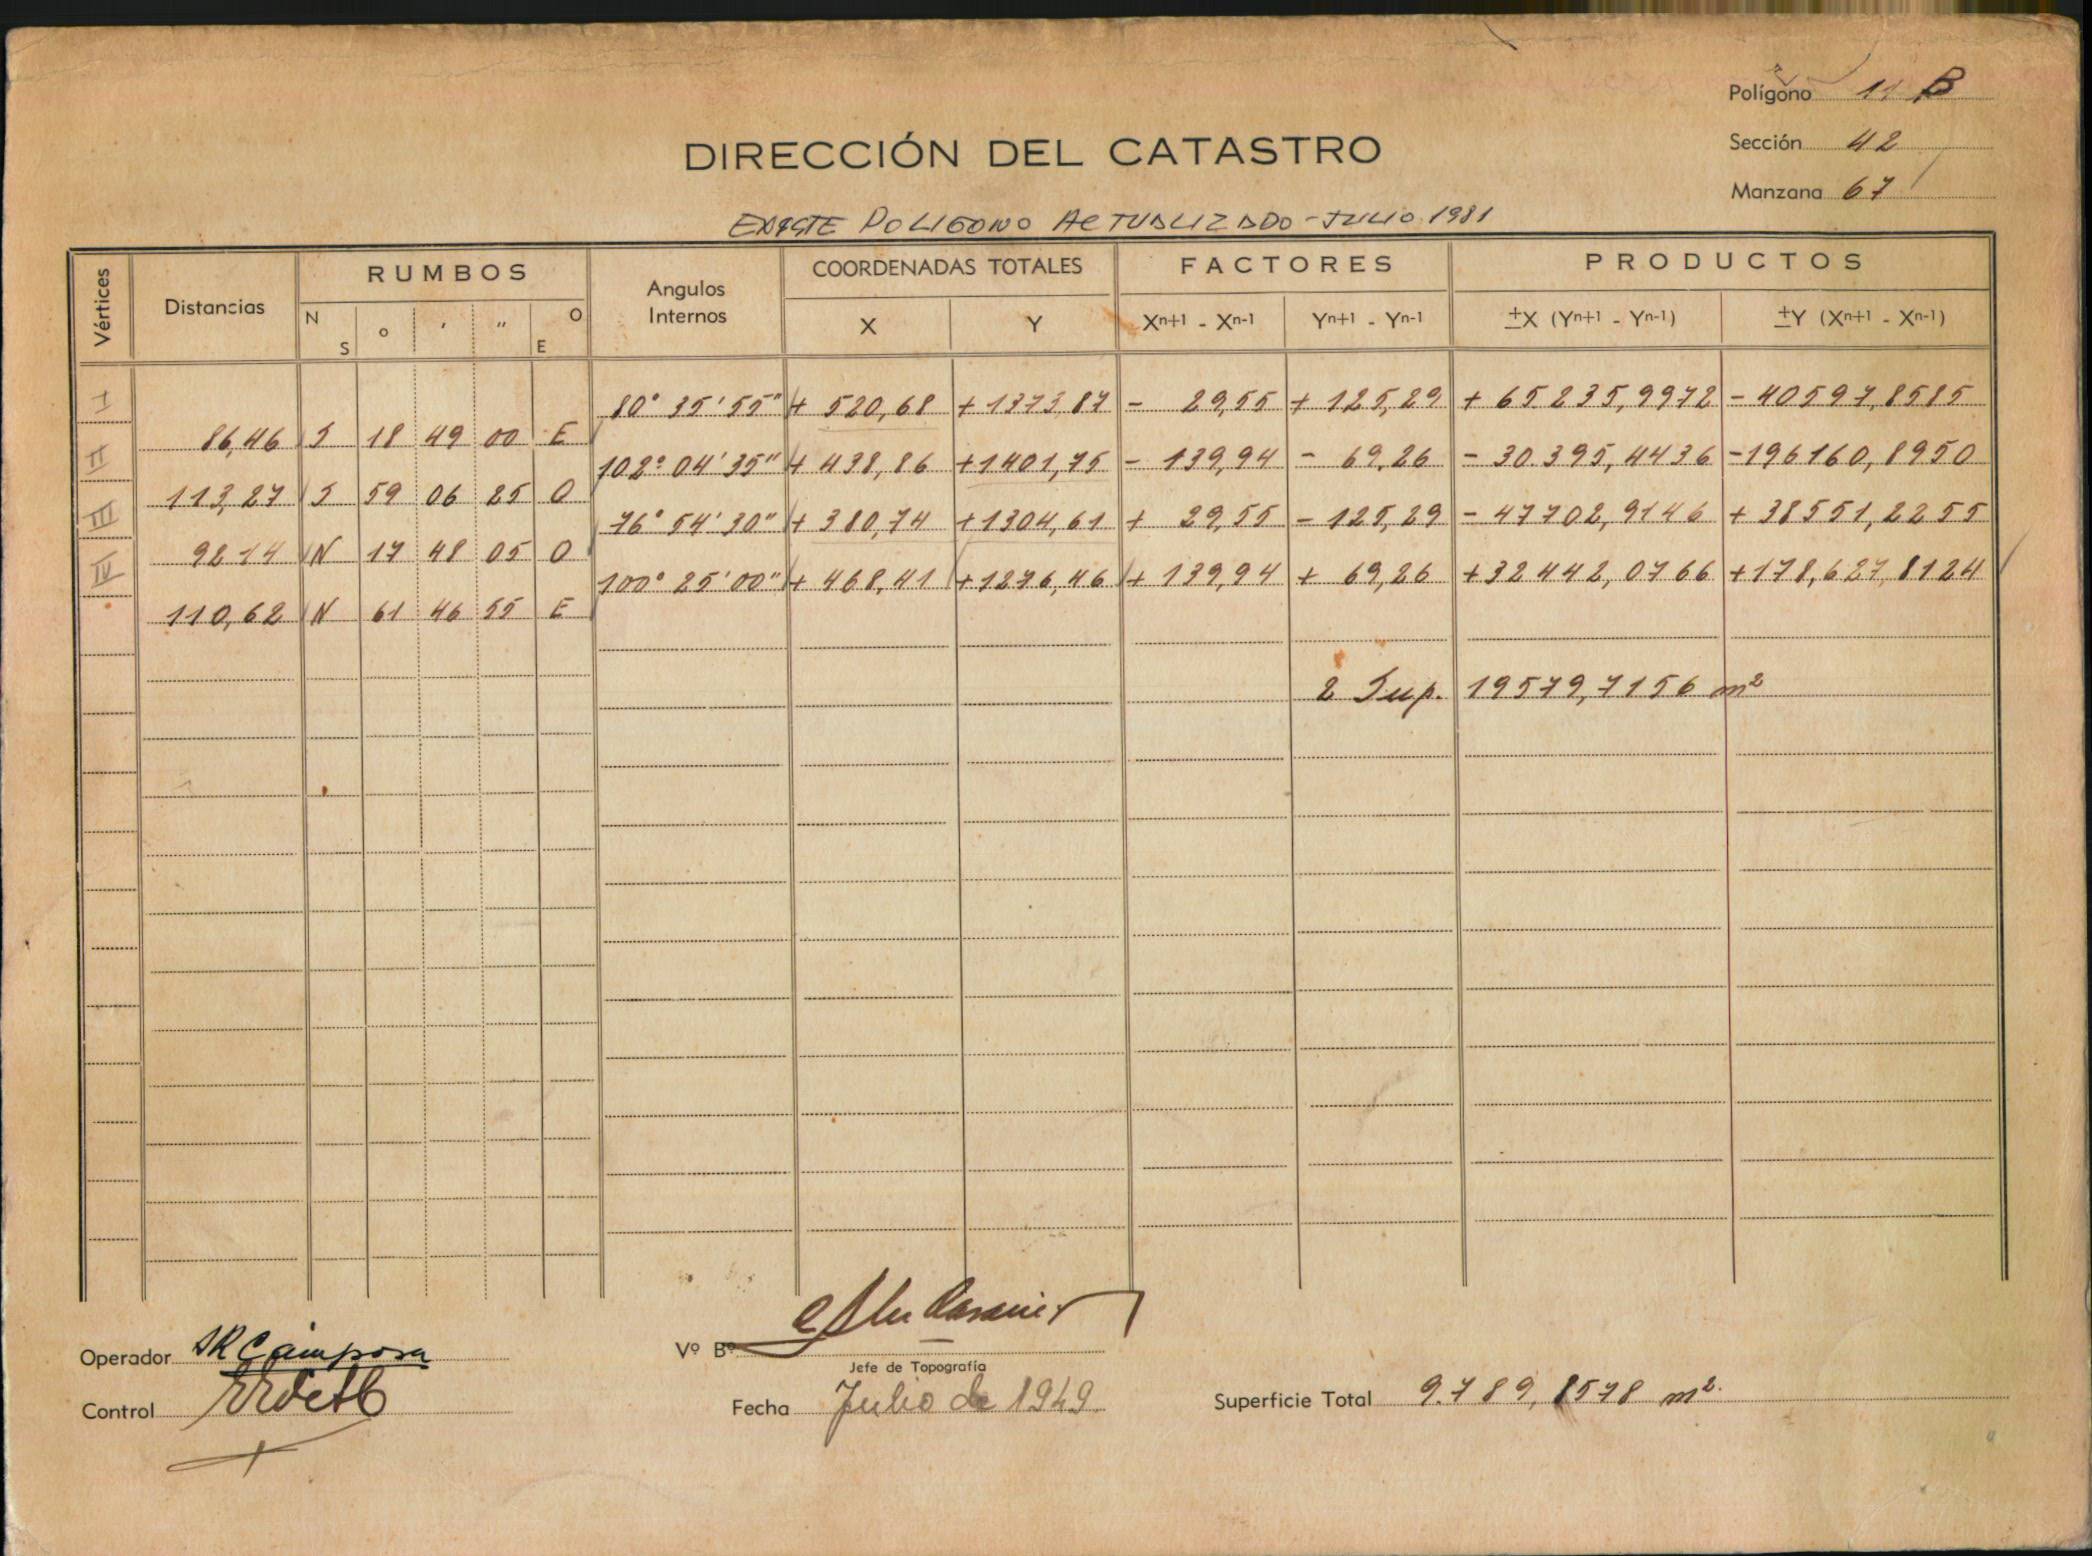 Polígono 11 B
Sección 42
Manzana 67
DIRECCIÓN DEL CATASTRO
EXISTE POLIGONO ACTUALIZADO - JULIO 1981
Vértices Distancias RUMBOS Angulos Internos COORDENADAS TOTALES FACTORES PRODUCTOS
N S o ' " O E X Y Xn+1 - Xn-1 Yn+1 - Yn-1 ±X (Yn+1 - Yn-1) ±Y (Xn+1 - Xn-1)
I 80° 35' 55" + 520,68 + 1373,87 - 29,55 + 125,29 + 65.235,9972 - 40597,8585
86,46 S 18 49 00 E
II 102° 04' 35" + 438,86 + 1401,75 - 139,94 - 69,26 - 30.395,4436 - 196160,8950
113,27 S 59 06 25 O
III 76° 54' 30" + 380,74 + 1304,61 + 29,55 - 125,29 - 47702,9146 + 38551,2255
92 14 N 17 48 05 O
IV 100° 25' 00" + 468,41 + 1276,46 + 139,94 + 69,26 + 32442,0766 + 178,627,8124
110,62 N 61 46 55 E
2 Sup. 19579,7156 m²
Operador
Vº Bº
Jefe de Topografía
Control
Fecha Julio de 1949
Superficie Total 9.789,8578 m².